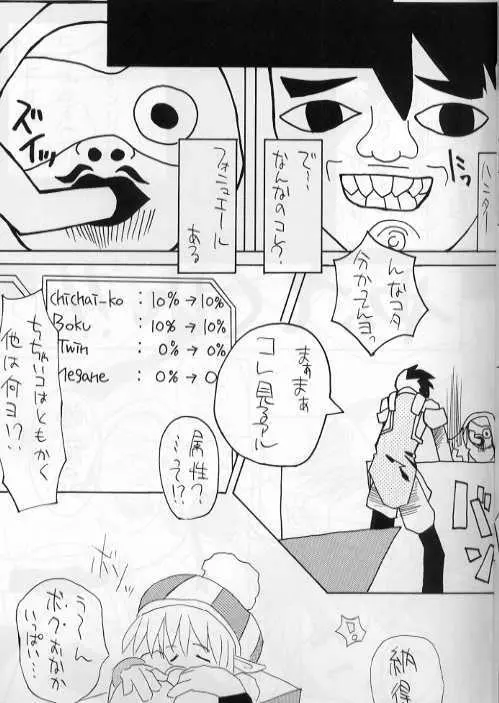 ハンター
ニッ
で…
なんなのコレ?
フォニュエール
ある
ズイッ
んなコタ
分かってんヨっ
まぁまぁ
コレ見るアル
バン
chichai-ko : 10% → 10%
Boku : 10% → 10%
Twin : 0% → 0%
Megane : 0% → 0
属性?
…って!?
ちっちゃいコはともかく
他は何ヨ!?
う〜ん
ボクおなか
いっぱい…
納得